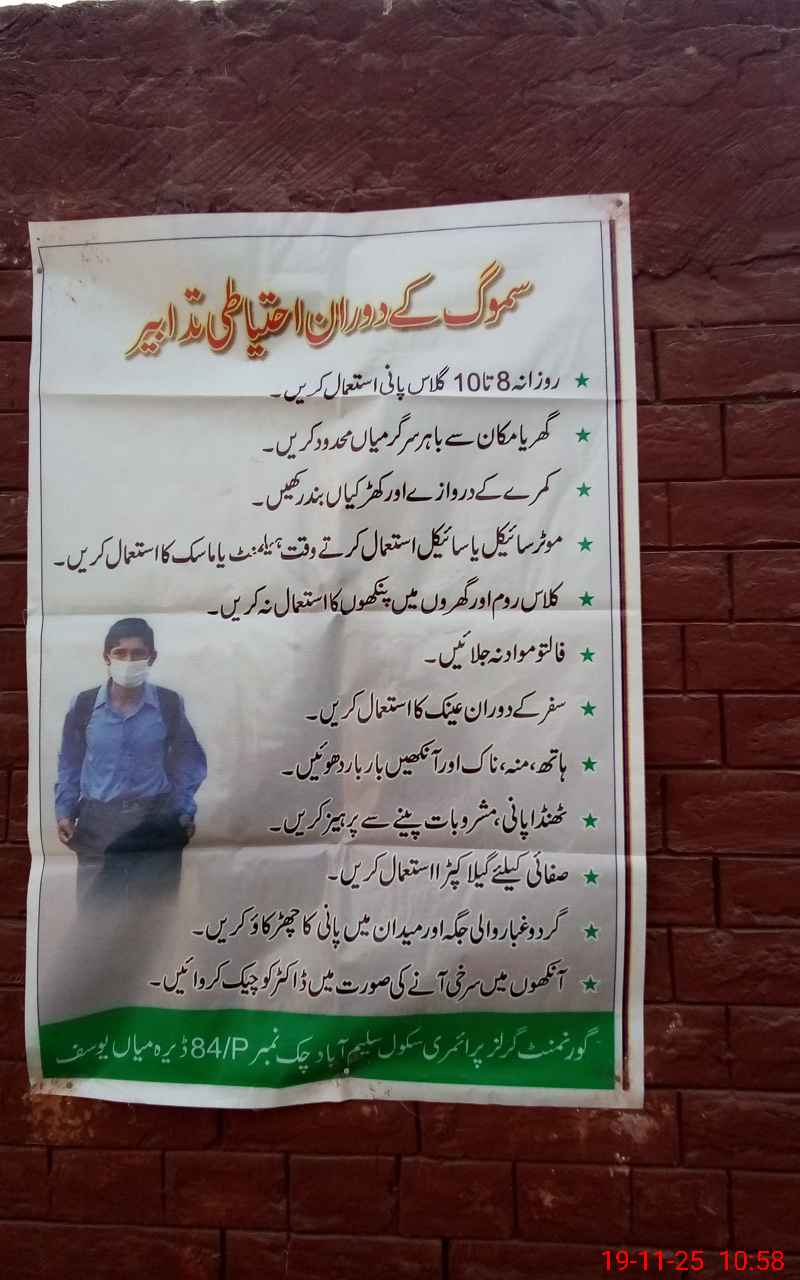 سموگ کے دوران احتیاطی تدابیر
★ روزانہ 8 تا 10 گلاس پانی استعمال کریں۔
★ گھر یا مکان سے باہر سرگرمیاں محدود کریں۔
★ کمرے کے دروازے اور کھڑکیاں بند رکھیں۔
★ موٹر سائیکل یا سائیکل استعمال کرتے وقت ہیلمنٹ یا ماسک کا استعمال کریں۔
★ کلاس روم اور گھروں میں پنکھوں کا استعمال نہ کریں۔
★ فالتو مواد نہ جلائیں۔
★ سفر کے دوران عینک کا استعمال کریں۔
★ ہاتھ، منہ، ناک اور آنکھیں بار بار دھوئیں۔
★ ٹھنڈا پانی، مشروبات پینے سے پرہیز کریں۔
★ صفائی کیلئے گیلا کپڑا استعمال کریں۔
★ گرد و غبار والی جگہ اور میدان میں پانی کا چھڑکاؤ کریں۔
★ آنکھوں میں سرخی آنے کی صورت میں ڈاکٹر کو چیک کروائیں۔
گورنمنٹ گرلز پرائمری سکول سلیم آباد چک نمبر 84/P ڈیرہ میاں یوسف
19-11-25 10:58